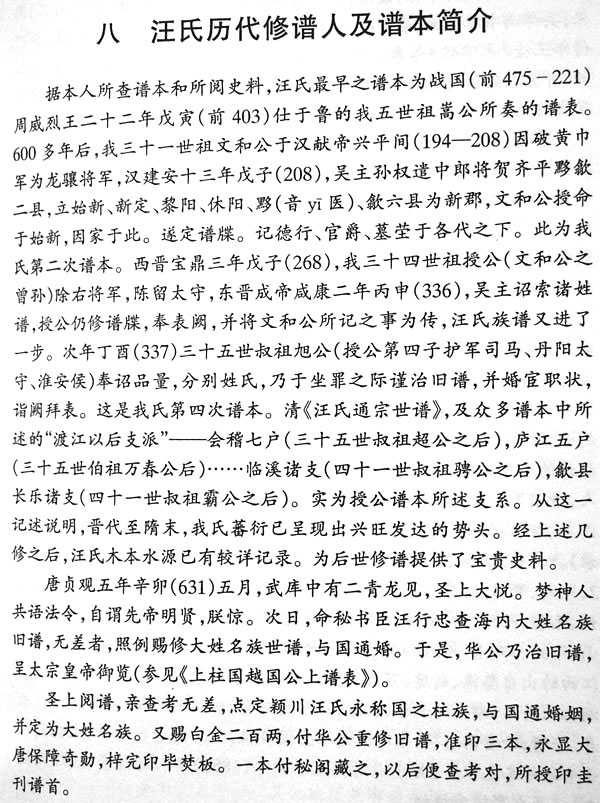 八　汪氏历代修谱人及谱本简介
据本人所查谱本和所阅史料,汪氏最早之谱本为战国(前475－221)
周威烈王二十二年戊寅(前403)仕于鲁的我五世祖嵩公所奏的谱表。
600多年后,我三十一世祖文和公于汉献帝兴平间(194—208)因破黄巾
军为龙骧将军,汉建安十三年戊子(208),吴主孙权遣中郎将贺齐平黟歙
二县,立始新、新定、黎阳、休阳、黟(音yī医)、歙六县为新郡,文和公授命
于始新,因家于此。遂定谱牒。记德行、官爵、墓茔于各代之下。此为我
氏第二次谱本。西晋宝鼎三年戊子(268),我三十四世祖授公(文和公之
曾孙)除右将军,陈留太守,东晋成帝咸康二年丙申(336),吴主诏索诸姓
谱,授公仍修谱牒,奉表阙,并将文和公所记之事为传,汪氏族谱又进了
一步。次年丁酉(337)三十五世叔祖旭公(授公第四子护军司马、丹阳太
守、淮安侯)奉诏品量,分别姓氏,乃于坐罪之际谨治旧谱,并婚宦职状,
诣阙拜表。这是我氏第四次谱本。清《汪氏通宗世谱》,及众多谱本中所
述的“渡江以后支派”——会稽七户(三十五世叔祖超公之后),庐江五户
(三十五世伯祖万春公后)……临溪诸支(四十一世叔祖骋公之后),歙县
长乐诸支(四十一世叔祖霸公之后)。实为授公谱本所述支系。从这一
记述说明,晋代至隋末,我氏蕃衍已呈现出兴旺发达的势头。经上述几
修之后,汪氏木本水源已有较详记录。为后世修谱提供了宝贵史料。
唐贞观五年辛卯(631)五月,武库中有二青龙见,圣上大悦。梦神人
共语法令,自谓先帝明贤,朕惊。次日,命秘书臣汪行忠查海内大姓名族
旧谱,无差者,照例赐修大姓名族世谱,与国通婚。于是,华公乃治旧谱,
呈太宗皇帝御览(参见《上柱国越国公上谱表》)。
圣上阅谱,亲查考无差,点定颍川汪氏永称国之柱族,与国通婚姻,
并定为大姓名族。又赐白金二百两,付华公重修旧谱,准印三本,永显大
唐保障奇勋,梓完印毕焚板。一本付秘阁藏之,以后便查考对,所授印圭
刊谱首。